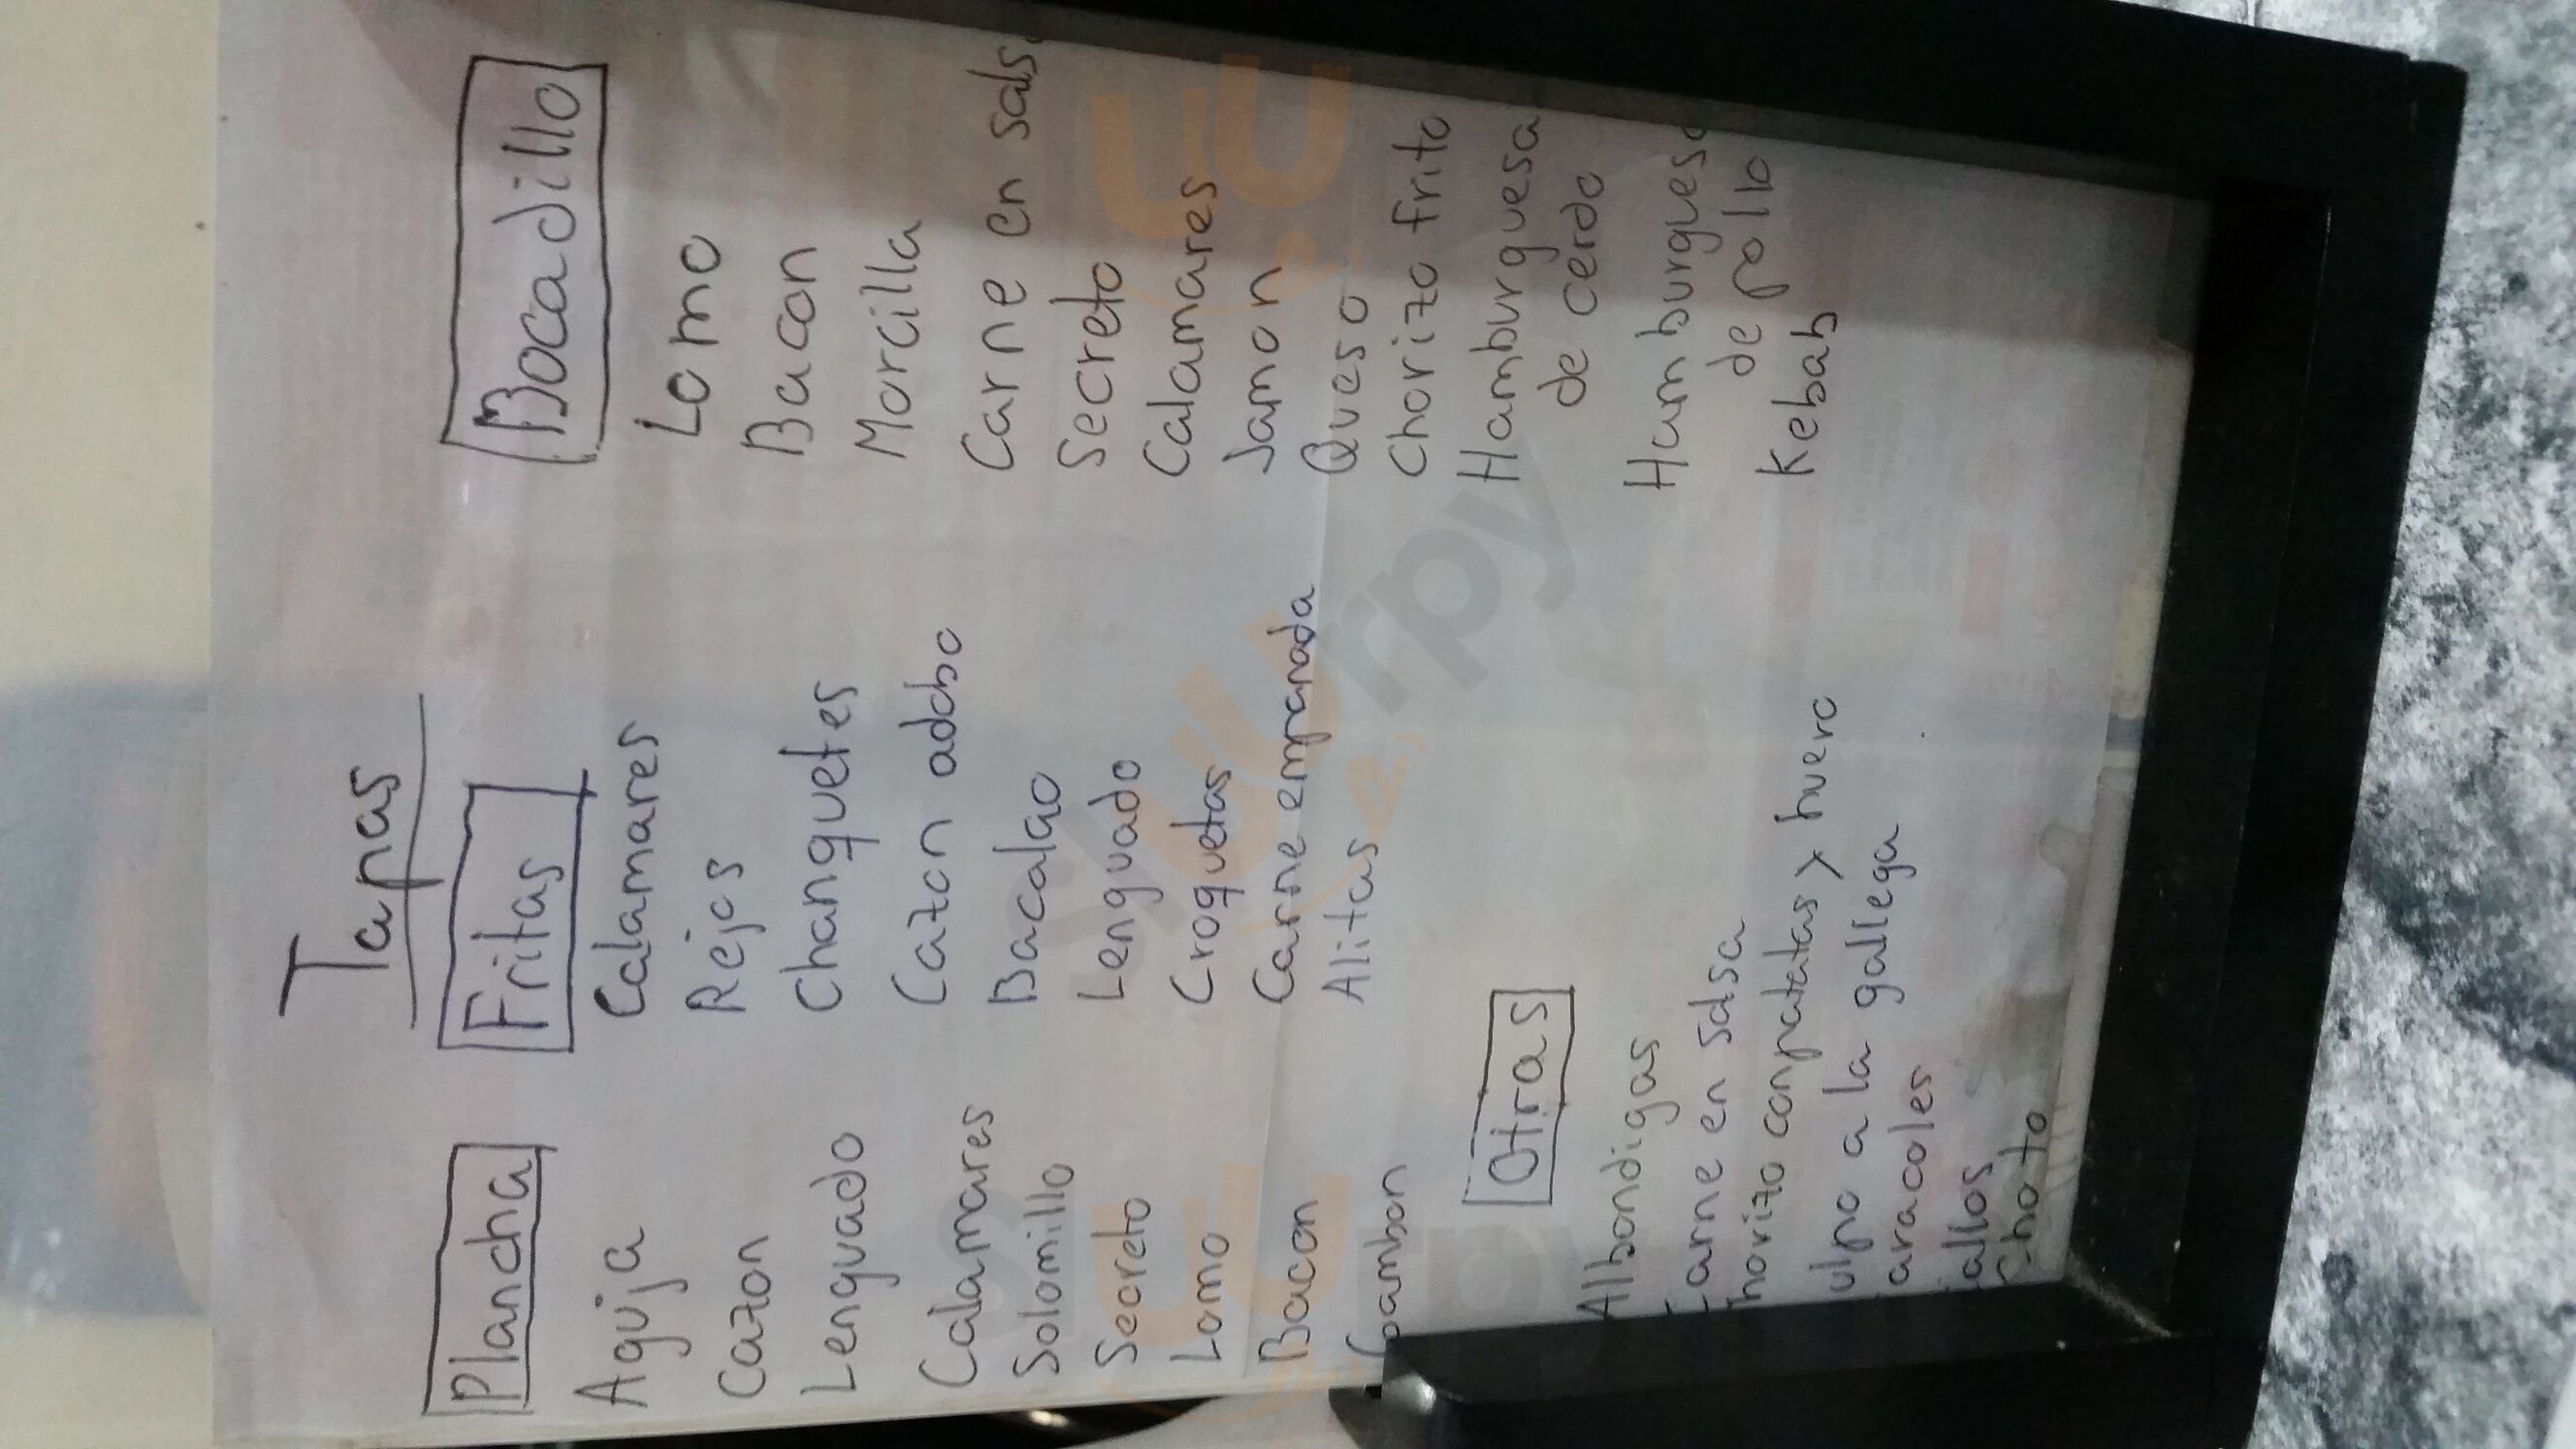 Tapas
Plancha
Aguja
Cazon
Lenguado
Calamares
Solomillo
Secreto
Lomo
Bacon
Gambon
Fritas
Calamares
Rejos
Chanquetes
Cazon adobo
Bacalao
Lenguado
Croquetas
Carne empanada
Alitas
Bocadillo
Lomo
Bacon
Morcilla
Carne en sals
Secreto
Calamares
Jamon
Queso
Chorizo frito
Hamburguesa
de cerdo
Hamburguesa
de pollo
Kebab
Otras
Albondigas
Carne en salsa
horizo con patatas y huevo
ulpo a la gallega
aracoles
allos
Choto
slUrpy